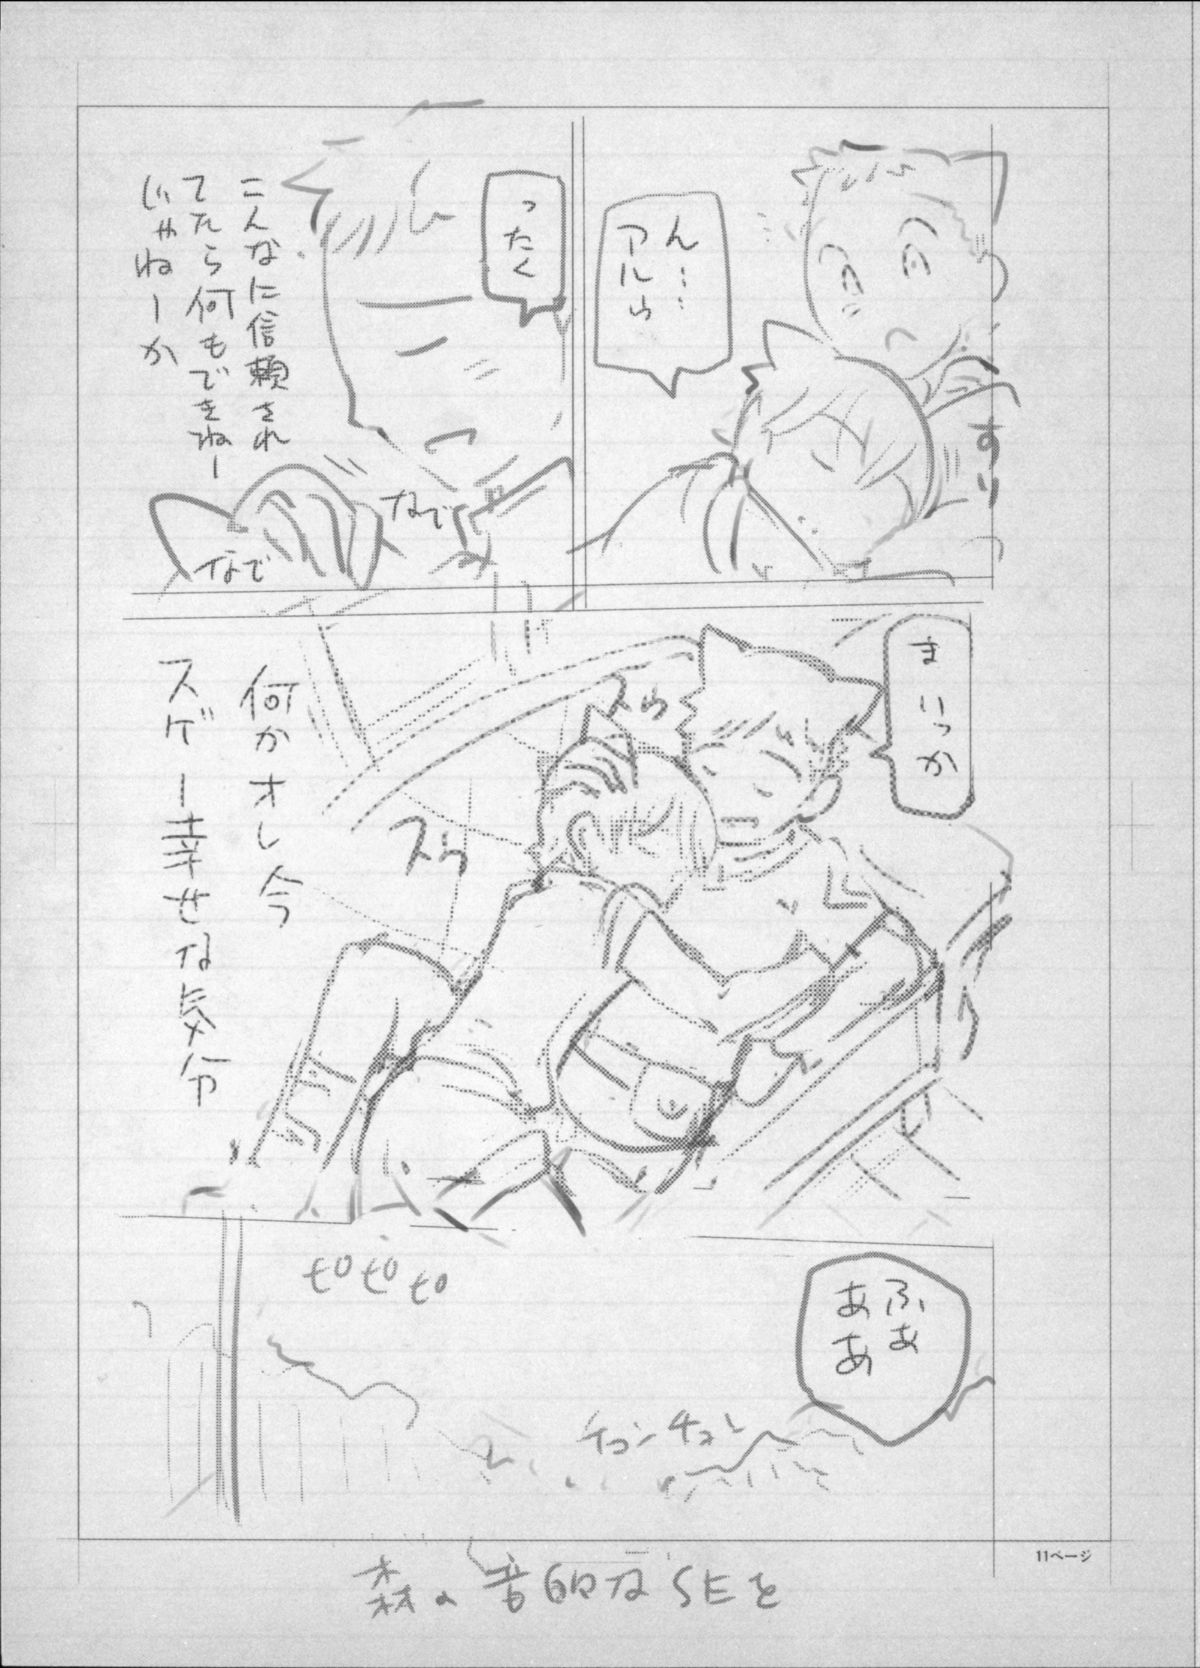 ん……
アルゥ
すり
ったく
こんなに信頼され
てたら何もできねー
じゃねーか
なで
なで
まいっか
スゥ
スゥ
何かオレ今
スゲー幸せな気分
ふぁ
ああ
チュンチュン
11ページ
森の音的なSEを